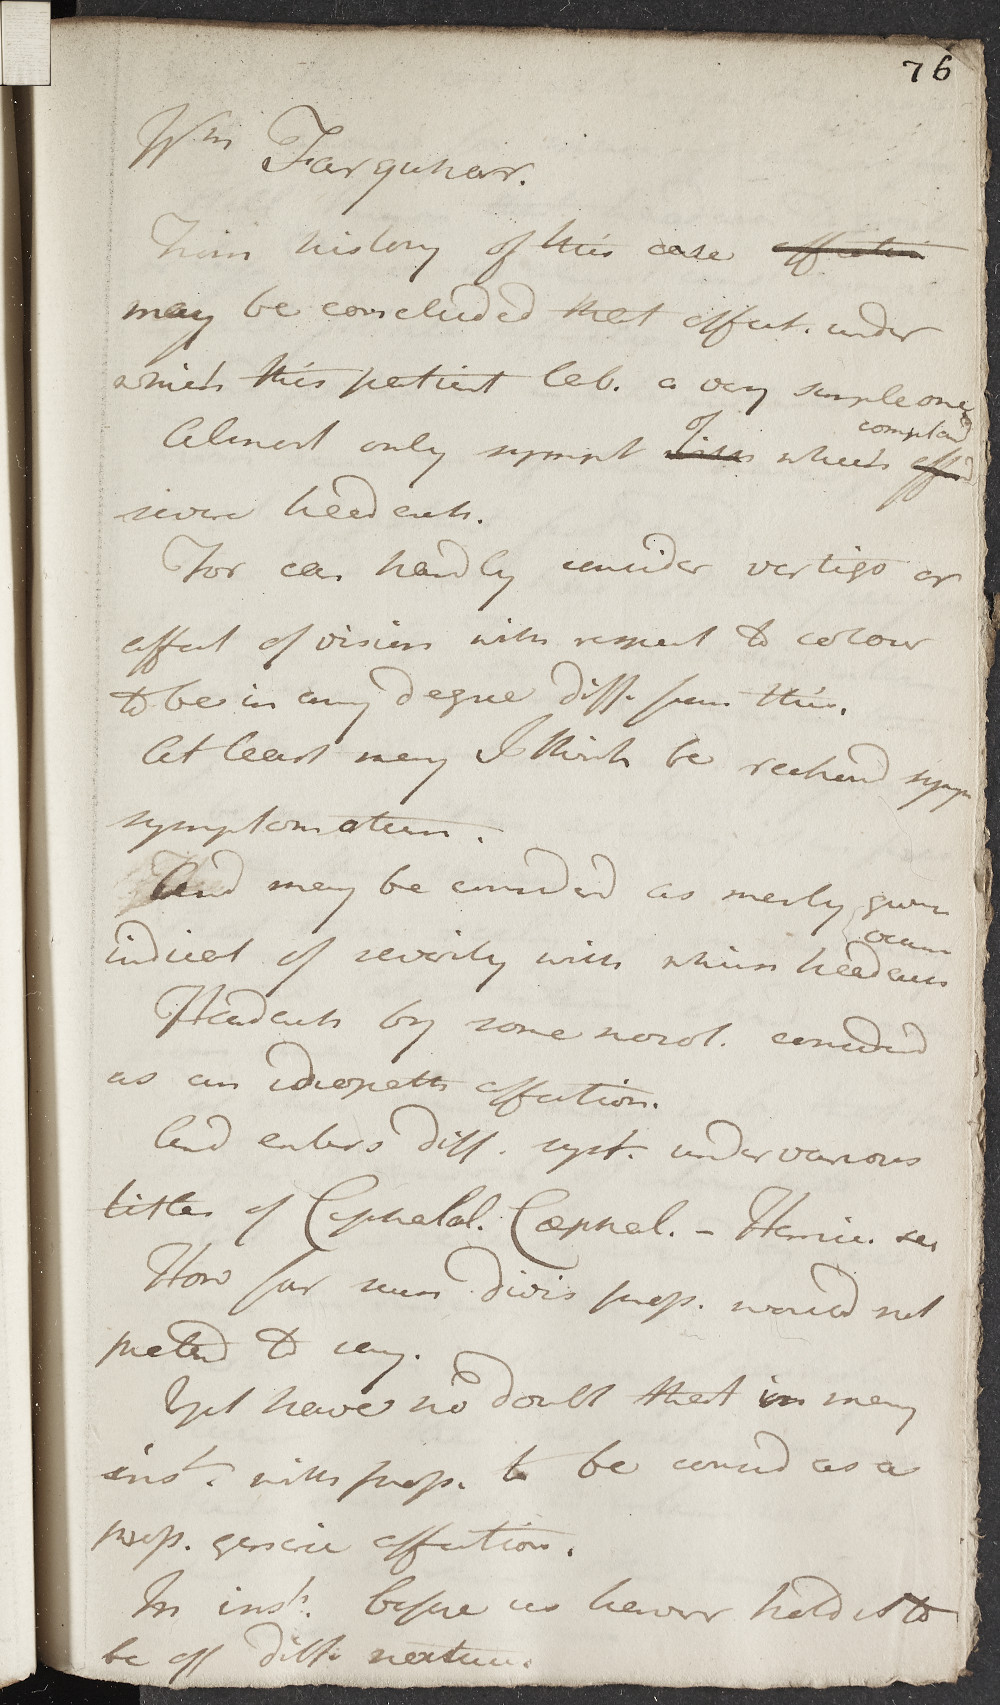 76
Wm Farquhar.
From history of this case affection
may be concluded that affect. under
which this patient lab. a very simple one
Almost only sympt of which complaind
severe headach.
For can hardly consider vertigo or
affect of vision with respect to colour
to be in any degree diff. from this.
At least may I think be reckond symp
symptomatum.
And may be considd as merly given
indicat of severity with which headach occurrs
Headach by some nosol. considd
as an idiopath affection.
And enters diff. syst. under various
titles of Cephalal. Cephal. - Hemic. &c
How far such divis prop. would not
pretend to say.
Yet have no doubt that in many
inst. with prop. to be consid as a
prop. generic affection.
In inst. before us howevr hold it to
be of diff. nature.